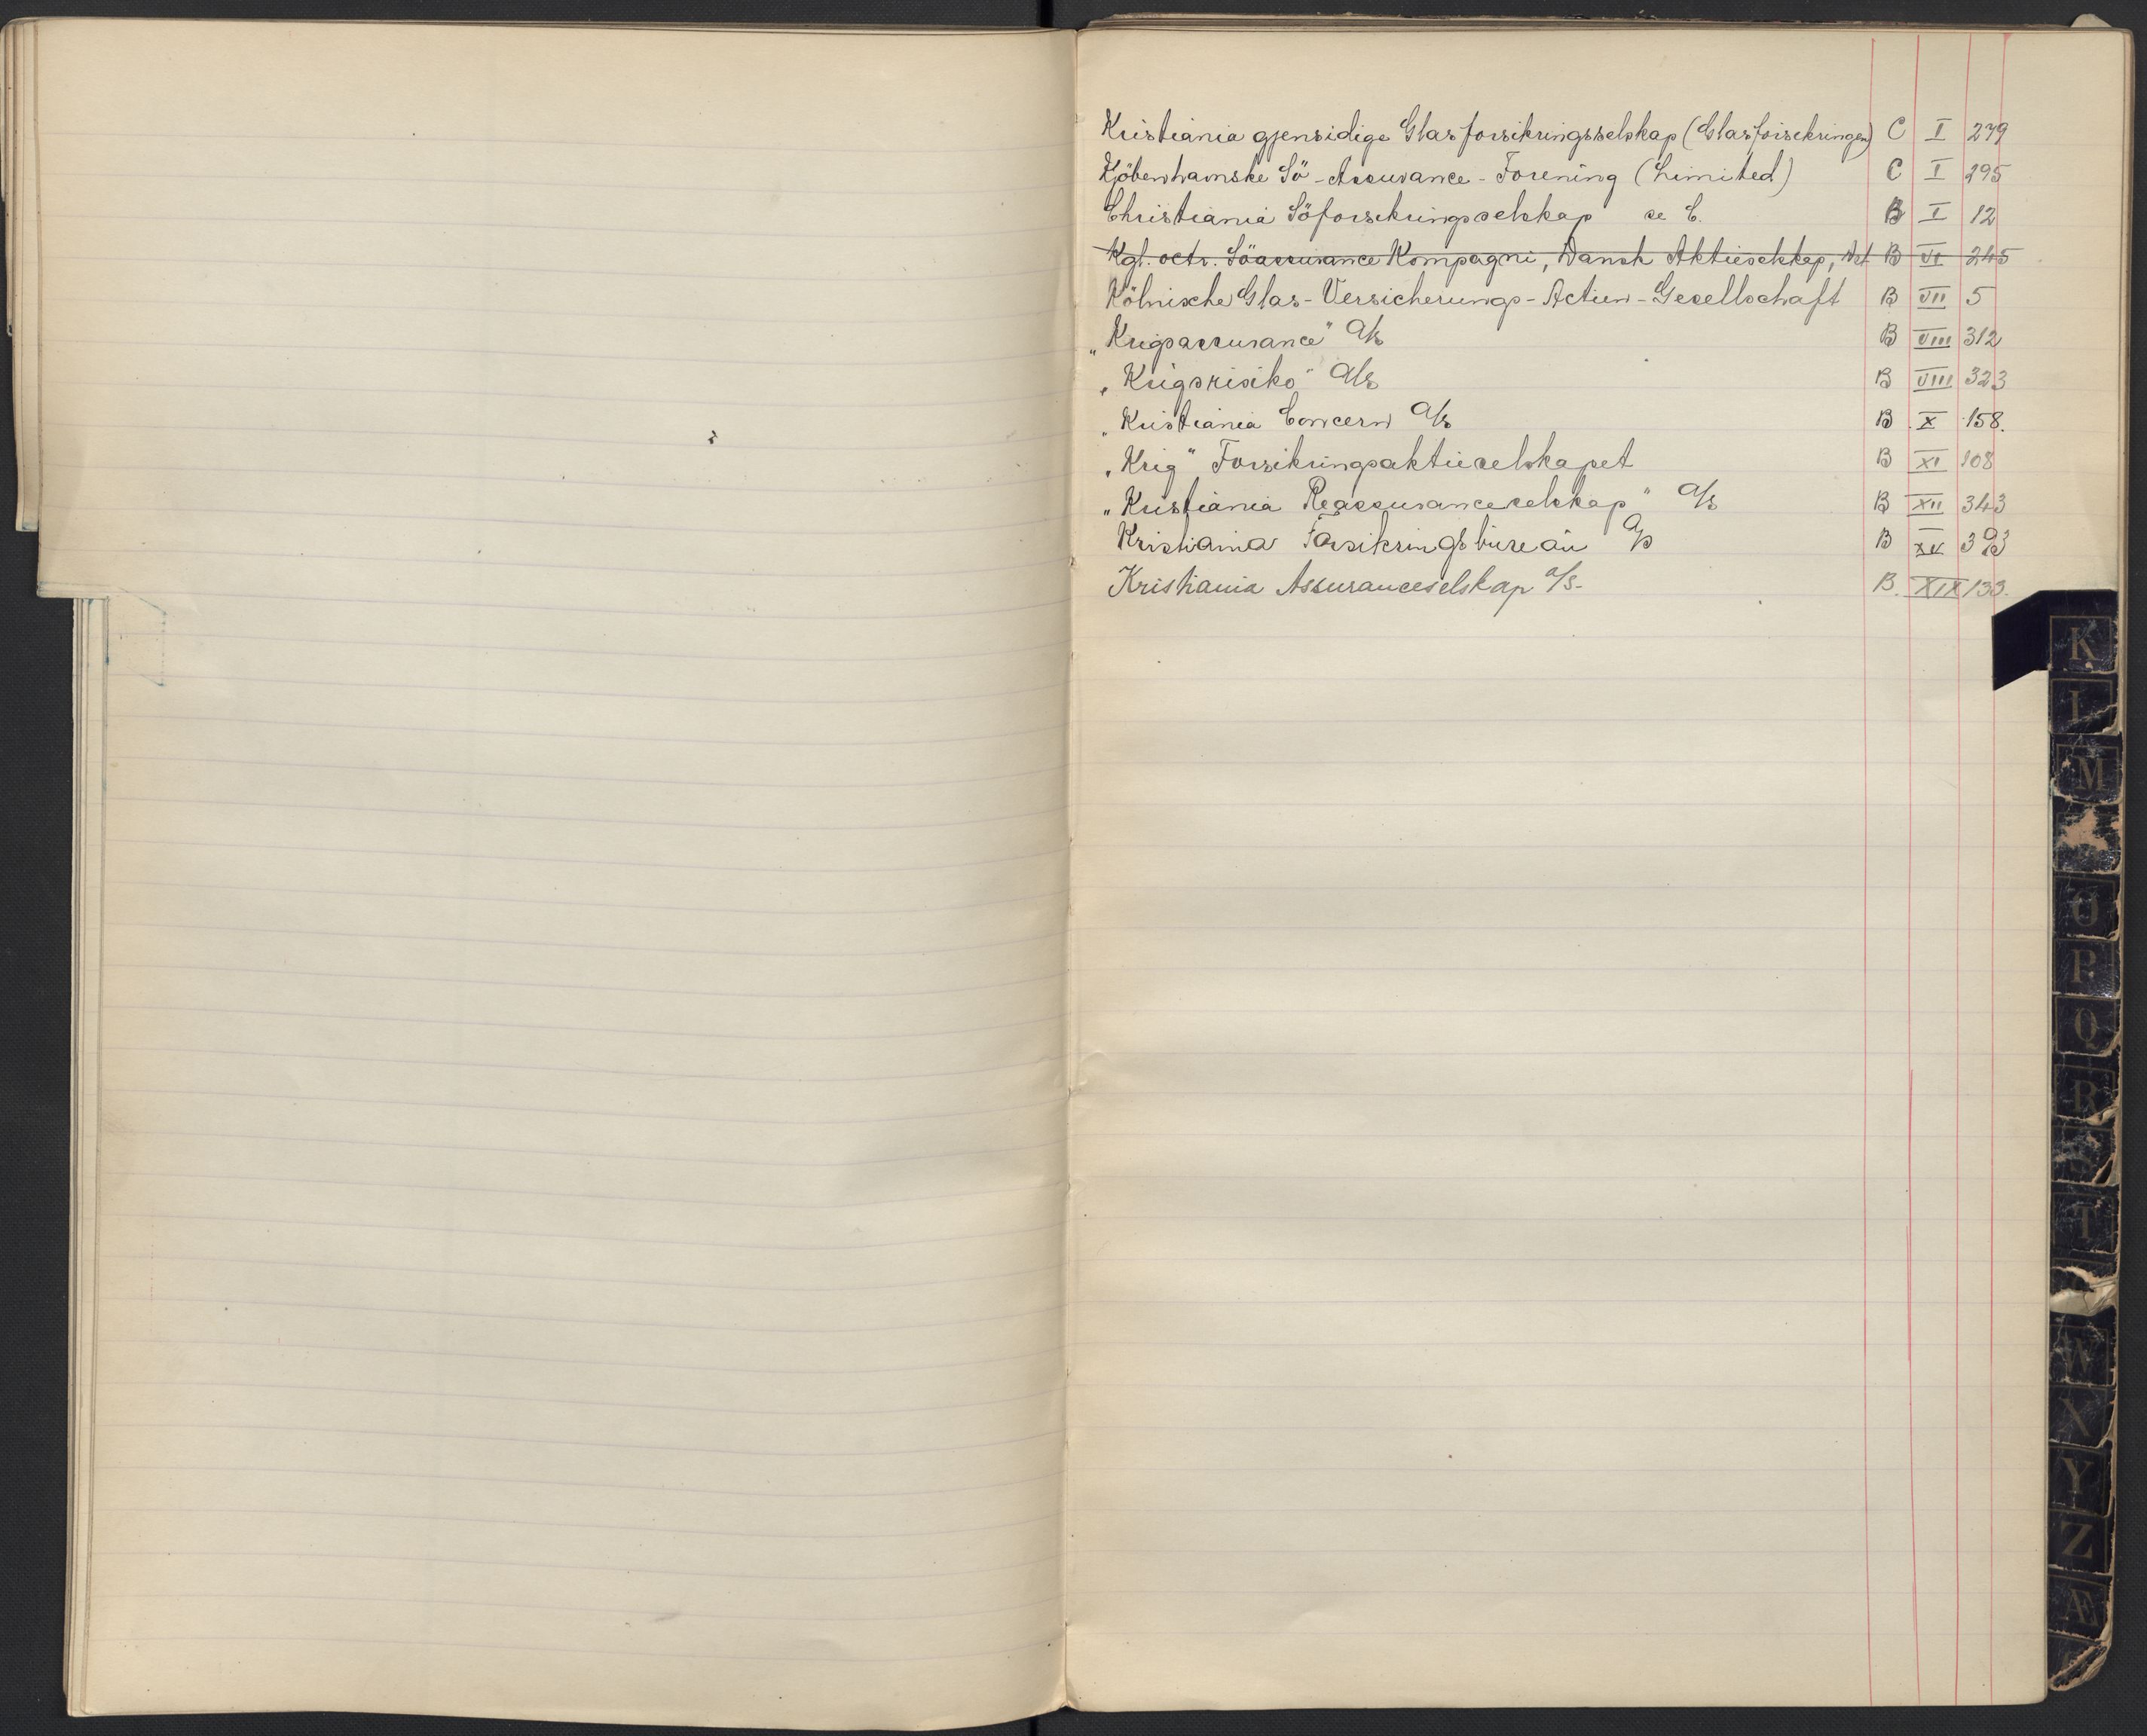 Kristiania gjensidige Glasforsikringsselskap (Glasforsikringen) C I 279
Kjöbenhavnske Sö-Assurance-Forening (Limited) C I 295
Christiania Söforsikringsselskap se C. B I 12
Kgl. octr. Söassurance Kompagni, Dansk Aktieselskap, Det B VI 245
Kölnische Glas-Versicherungs-Actien-Gesellschaft B VII 5
„Krigsassurance" A/s B VIII 312
„Krigsrisiko" A/s B VIII 323
„Kristiania Concern A/s B X 158.
„Krig" Forsikringsaktieselskapet B XI 108
„Kristiania Reassuranceselskap" A/s B XII 343
Kristiania Forsikringsbureau A/s B XV 393
Kristiania Assuranceselskap A/S- B. XIX 133.
K
L
M
O
P
Q
R
T
W
X
Y
Z
Æ